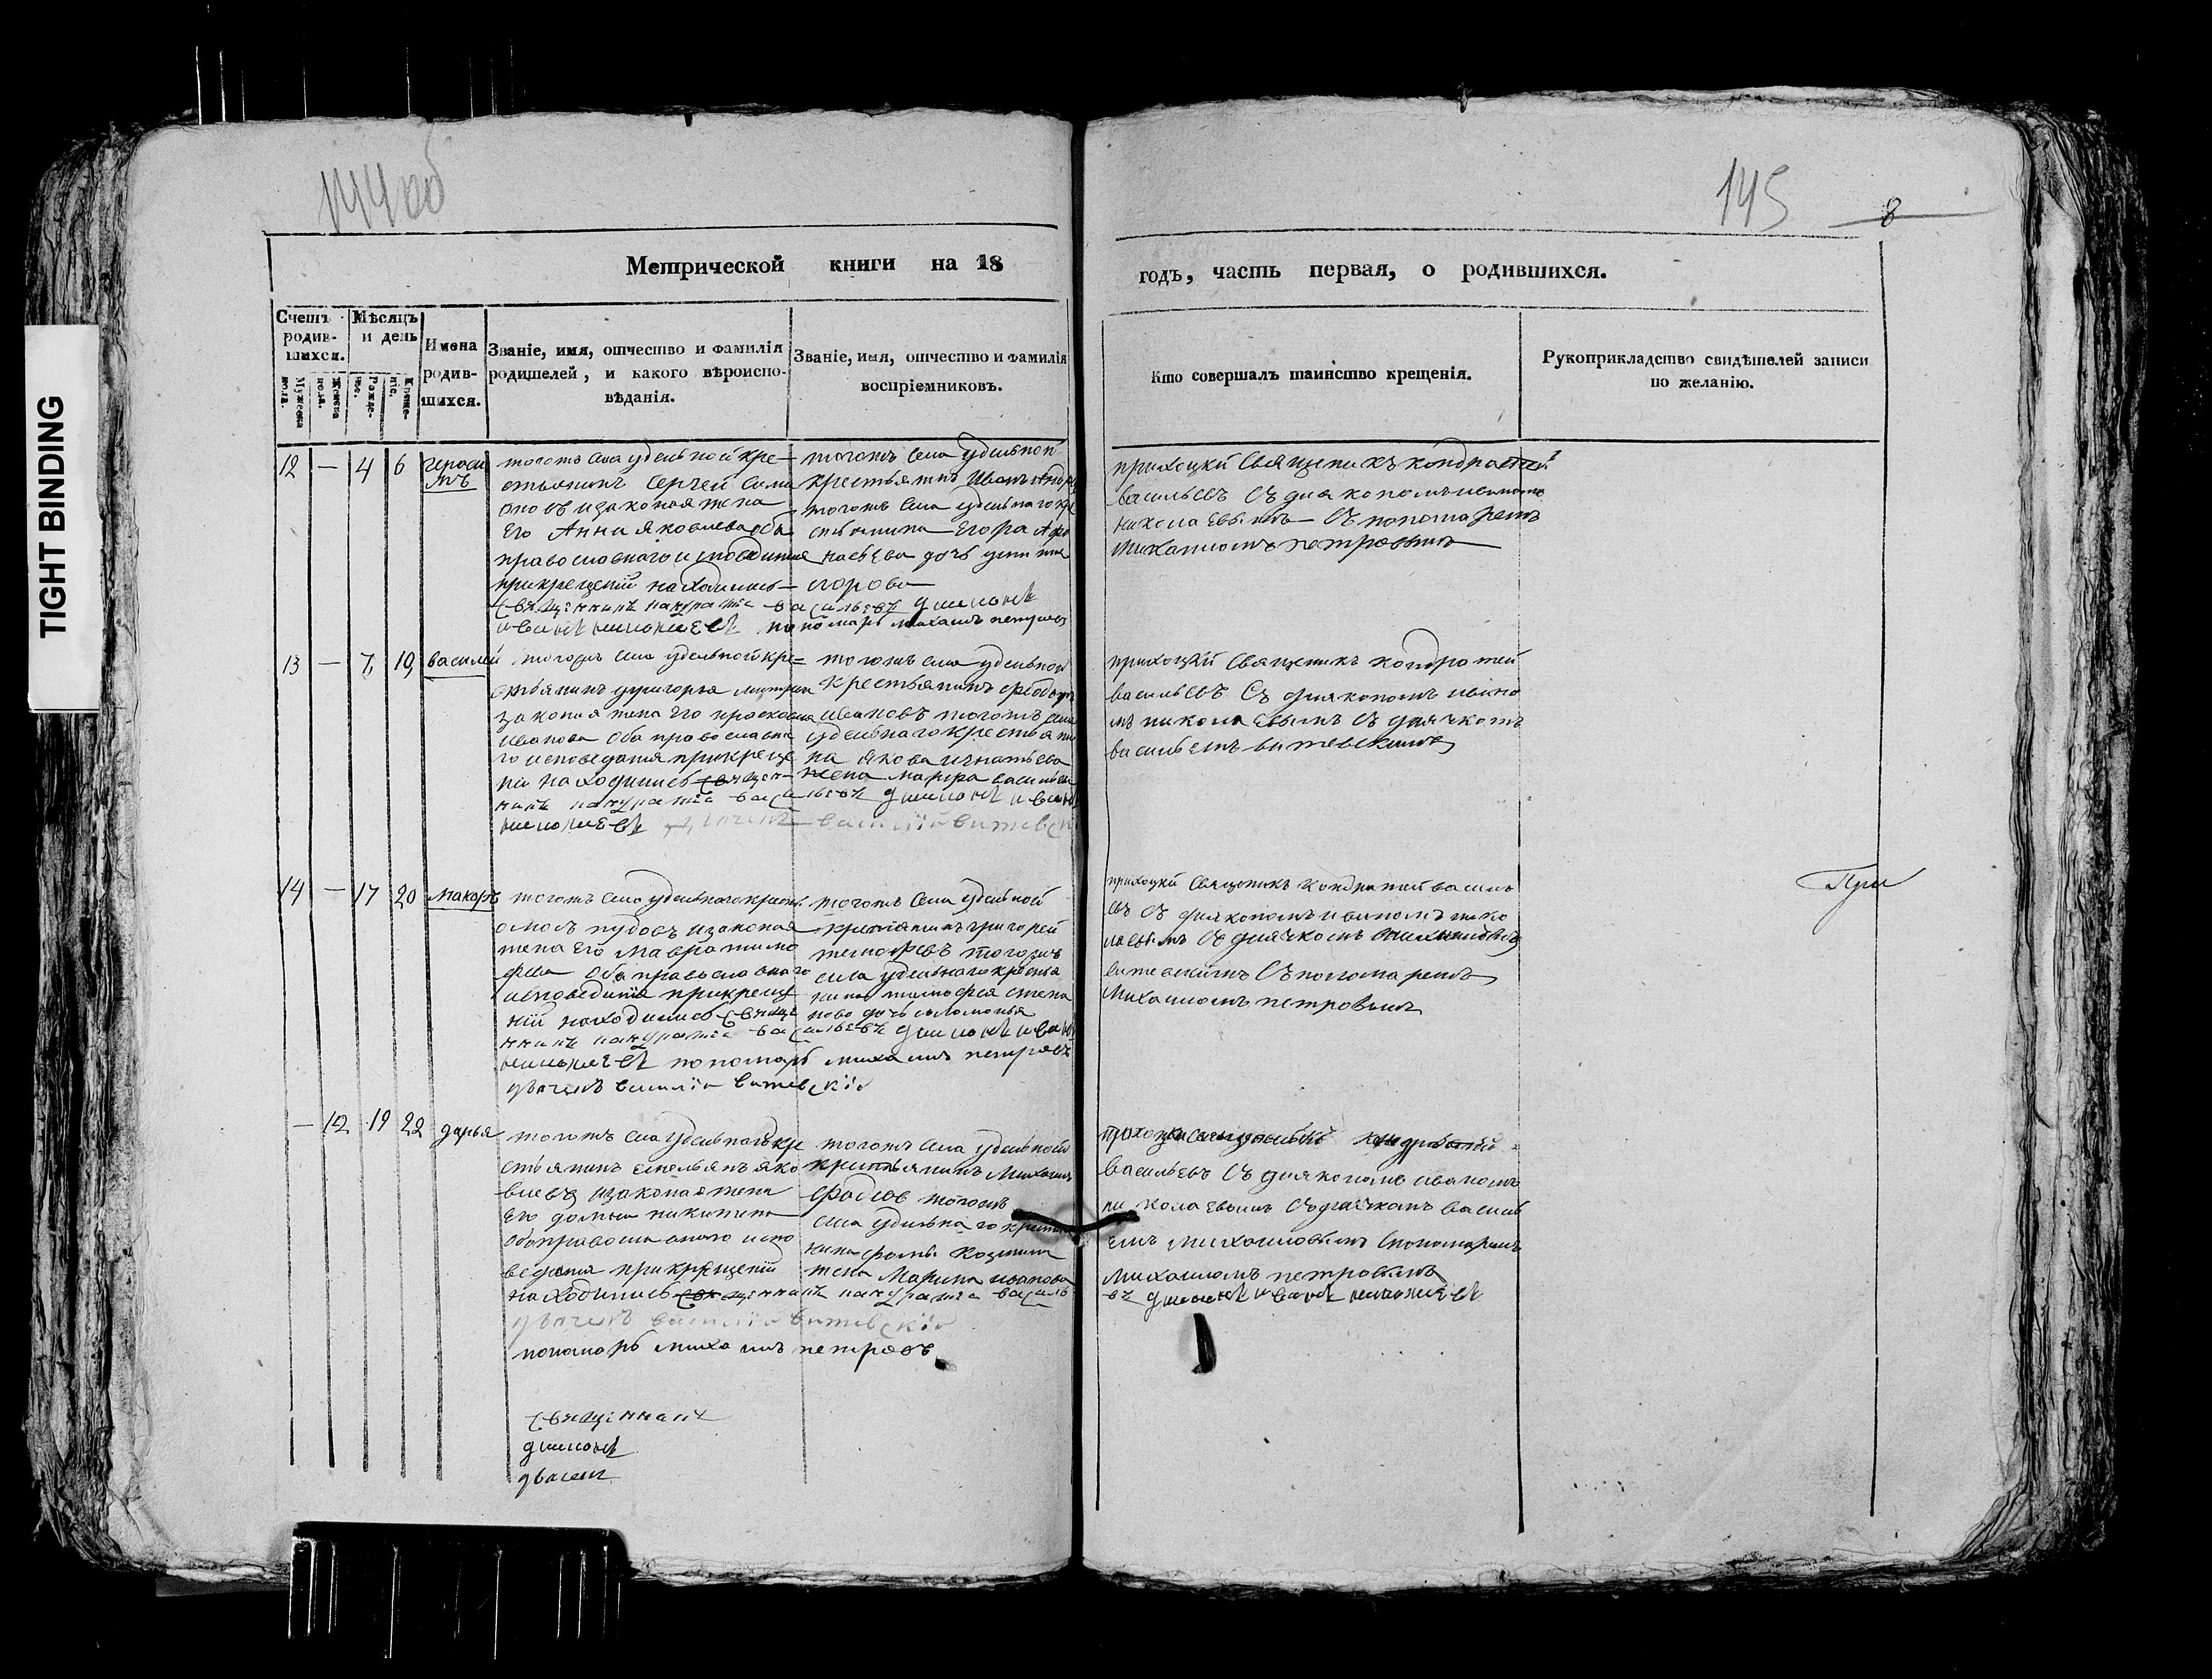 TIGHT BINDING
144 об
145
8
Метрической книги на 18
годъ, часть первая, о родившихся.
Счетъ родив-шихся.
Мѣсяцъ и день
Мужеска пола.
Женска пола.
Рожде-ніе.
Креще-ніе.
Имена родив-шихся.
Званіе, имя, отчество и фамилія родителей, и какого вѣроиспо-вѣданія.
Званіе, имя, отчество и фамилія воспріемниковъ.
Кто совершалъ таинство крещенія.
Рукоприкладство свидѣтелей записи по желанію.
12 — 4 6 гераси
мъ
тогожъ села удельной кре-
стьянинъ Сергей Сими
оновъ изаконая жена
Его Анна яковлева оба
православнаго исповедания
прикрещении находились
священникъ кандратiе васильевъ диаконъ
иванъ николаевъ пономарь михаилъ петровъ
тогожъ села удельной
крестьянинъ Иванъ
тогожъ села удельнаго кре
стьянина Егора Афо
насьева дочь
егорова
приходцкй Священикъ кондратей
васильевъ Съ диякономъ иваномъ
николаевымъ Съ пономаремъ
михаиломъ петровымъ
13 — 7 10 василей
тогожъ села удельной кре=
стьянинъ григорья
законая жена Его
иванова Оба православна
го исповедания прикреще
нii находились священ-
никъ кандратiе васильевъ диаконъ иванъ
николаевъ дьячекъ василiй витевск
тогожъ села удельной
Крестьянинъ
ивановъ тогожъ села
удельнаго крестьяни
на якова игнатьева
жена марфа васильева
приходцкй Священикъ кондратей
васильевъ Съ диякономъ ивано
мъ николаевымъ Съ дьячкомъ
васильемъ витевскимъ
14 — 17 20 макаръ
тогожъ села удельнаго крест
пудовъ изаконая
жена Его мавра тимо
феева Оба православнаго
исповедания прикреще
нiй находились священ
никъ кандратiе васильевъ диаконъ иванъ
николаевъ пономарь михаилъ петровъ
дьячекъ василiй витевскiй
тогожъ села удельной
крестьянинъ григорей
тимофеевъ тогожъ
села удельнаго крестья
нина тимофея степа
нова дочь соломонья
приходцкй Священикъ Кондратей василь
евъ Съ диякономъ иваномъ нико
лаевымъ Съ диячкомъ
витевскимъ Съ пономаремъ
Михаиломъ петровымъ
При
— 12 19 22 дарья
тогожъ села удельнаго кре
стьянинъ емельянъ яко
влевъ изаконая жена
Его домна никитина
оба православнаго испо
ведания прикрещении
находились священникъ кандратiе василь
дьячекъ василiй витевскiй
пономарь михаилъ петровъ
тогожъ села удельной
крестьянинъ Михаилъ
тогожъ
села удельнаго крестья
нина фомы Козмина
жена Марина иванова
кандратей
васильевъ Съ диякономъ иваномъ
николаевымъ Съ диячкомъ василь
емъ михаиловымъ Спономаремъ
михаиломъ петровымъ
евъ диаконъ иванъ николаевъ
священникъ
диаконъ
дьячекъ